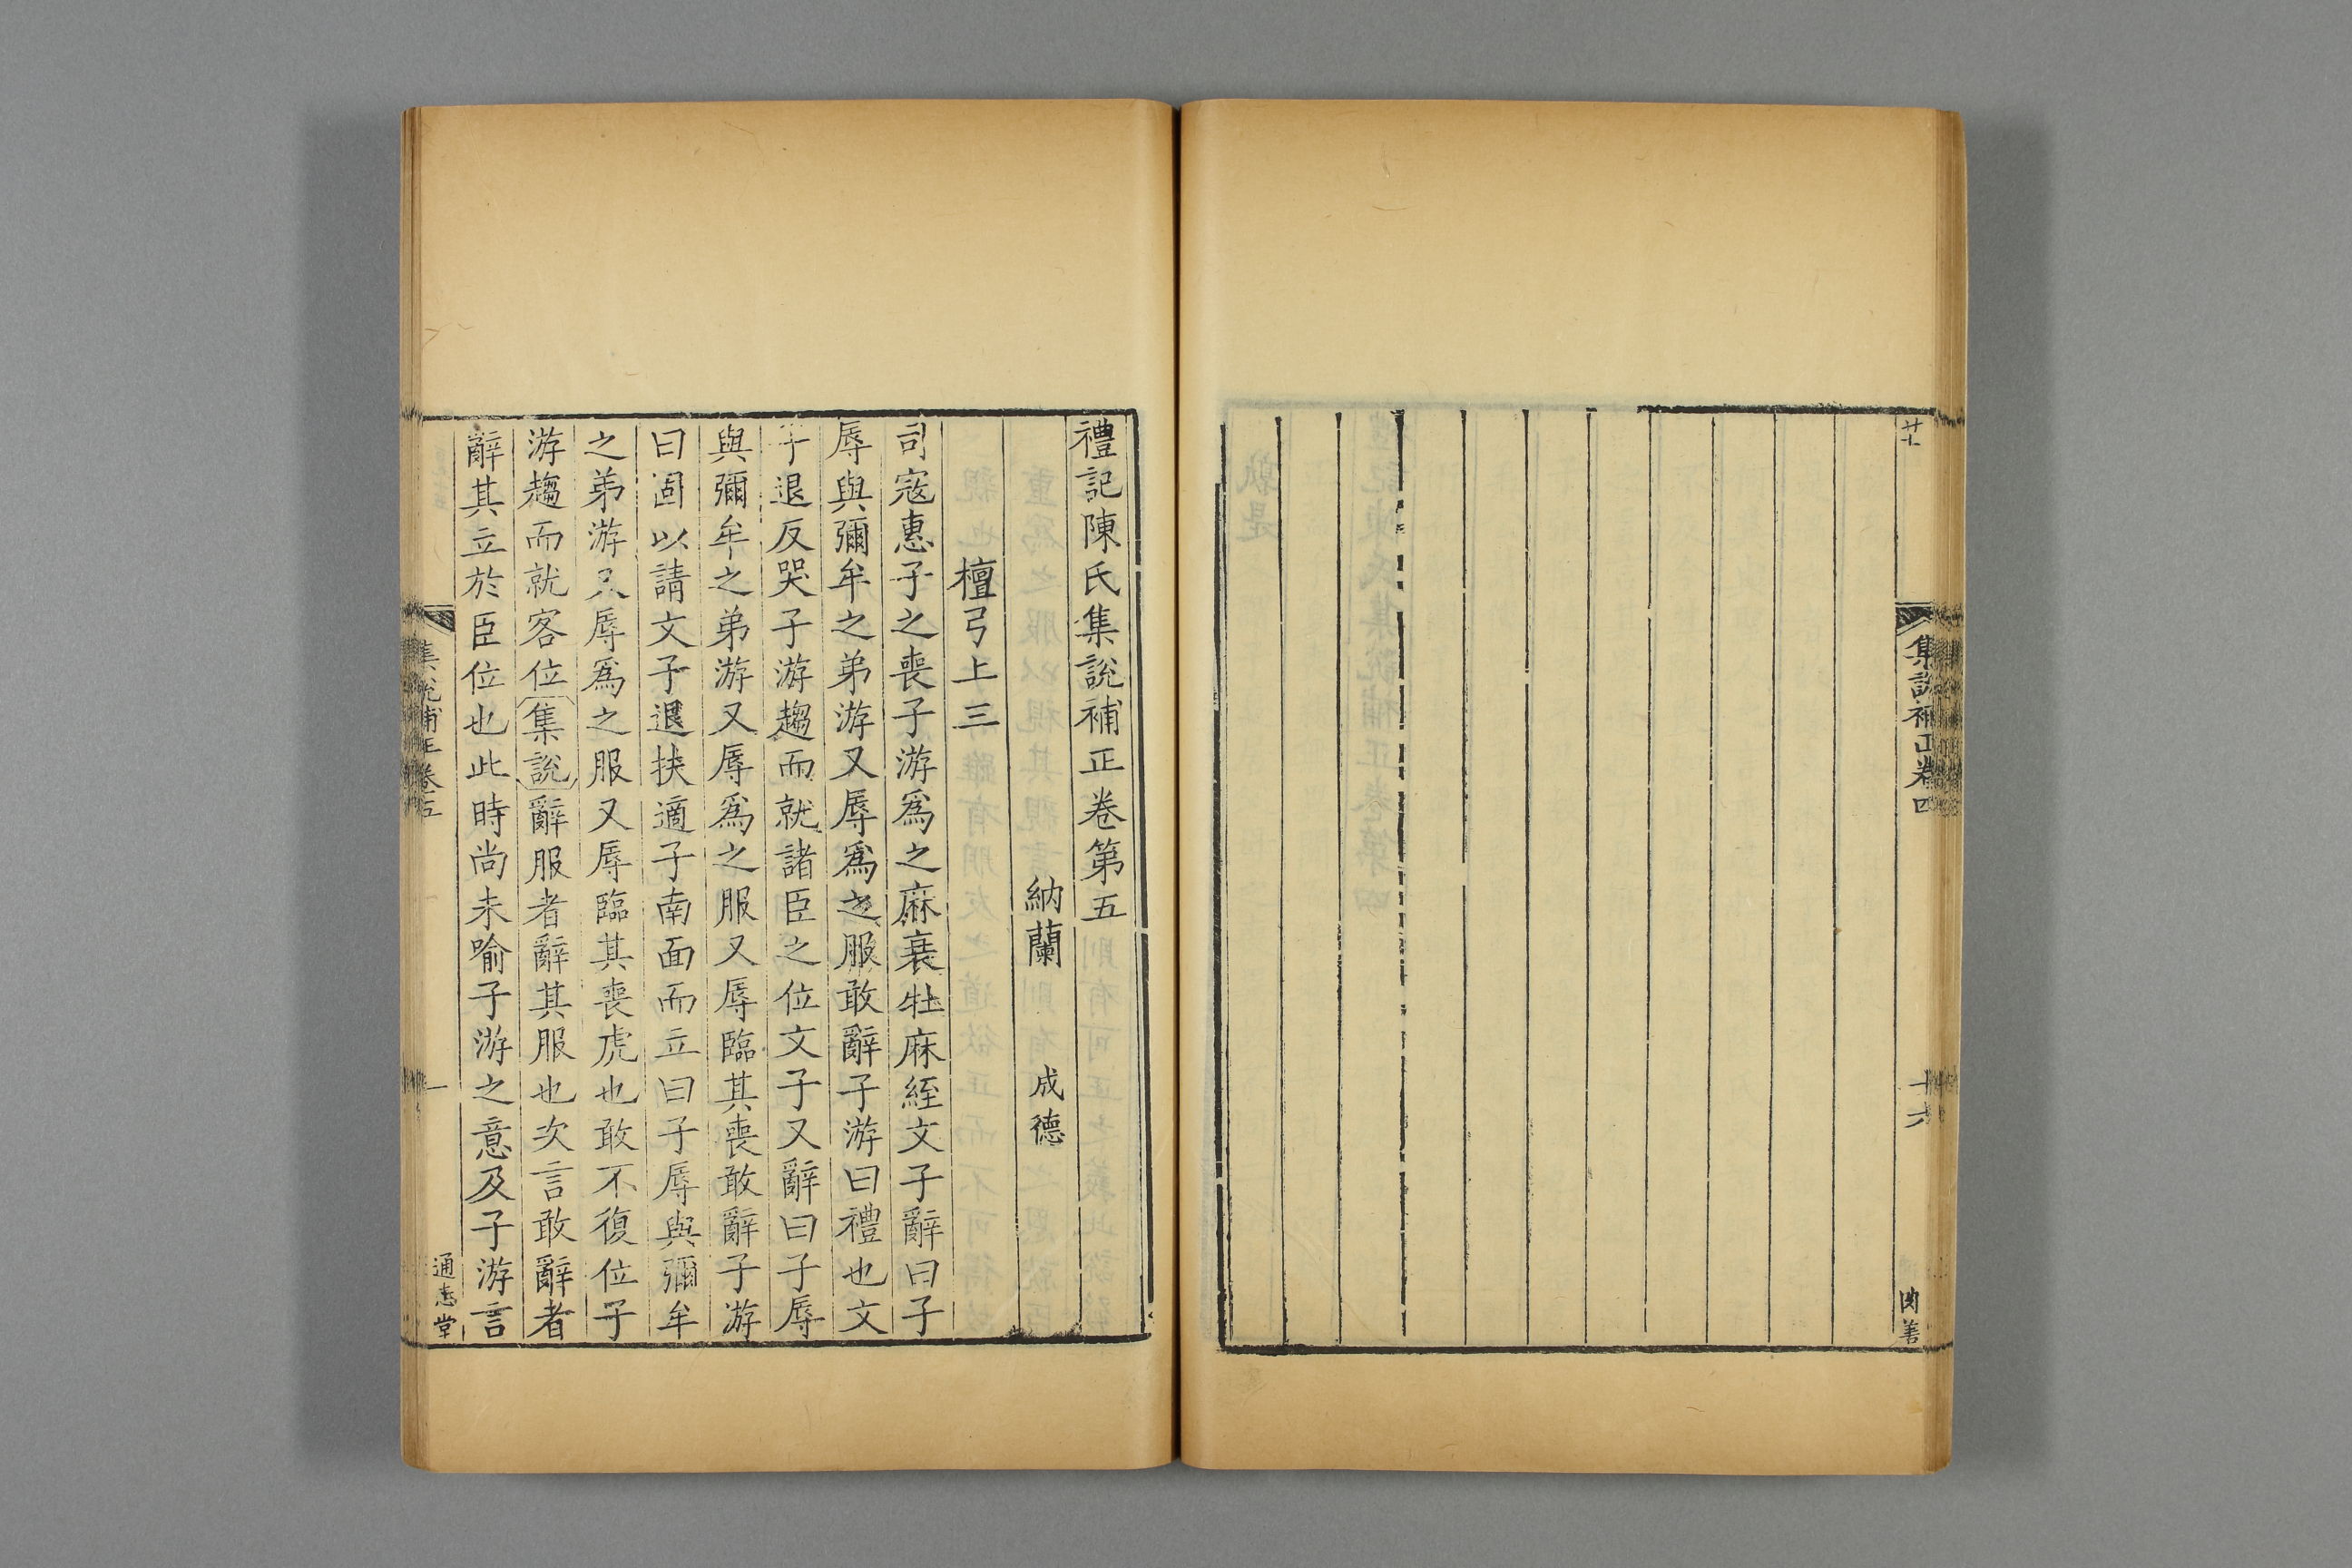 廿
集說補正卷四
十六
禮記陳氏集說補正卷第五
納蘭 成德
檀弓上三
司寇惠子之喪子游爲之麻衰牡麻絰文子辭曰子
辱與彌牟之弟游又辱爲之服敢辭子游曰禮也文
子退反哭子游趨而就諸臣之位文子又辭曰子辱
與彌牟之弟游又辱爲之服又辱臨其喪敢辭子游
曰固以請文子退扶適子南面而立曰子辱與彌牟
之弟游又辱爲之服又辱臨其喪虎也敢不復位子
游趨而就客位集說辭服者辭其服也次言敢辭者
辭其立於臣位也此時尚未喻子游之意及子游言
集說補正卷五
一
通志堂